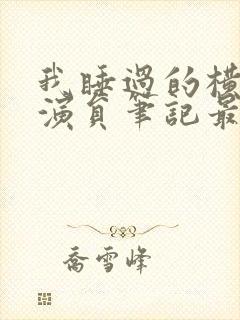 我睡過的橫
演員筆記最
喬雪峰